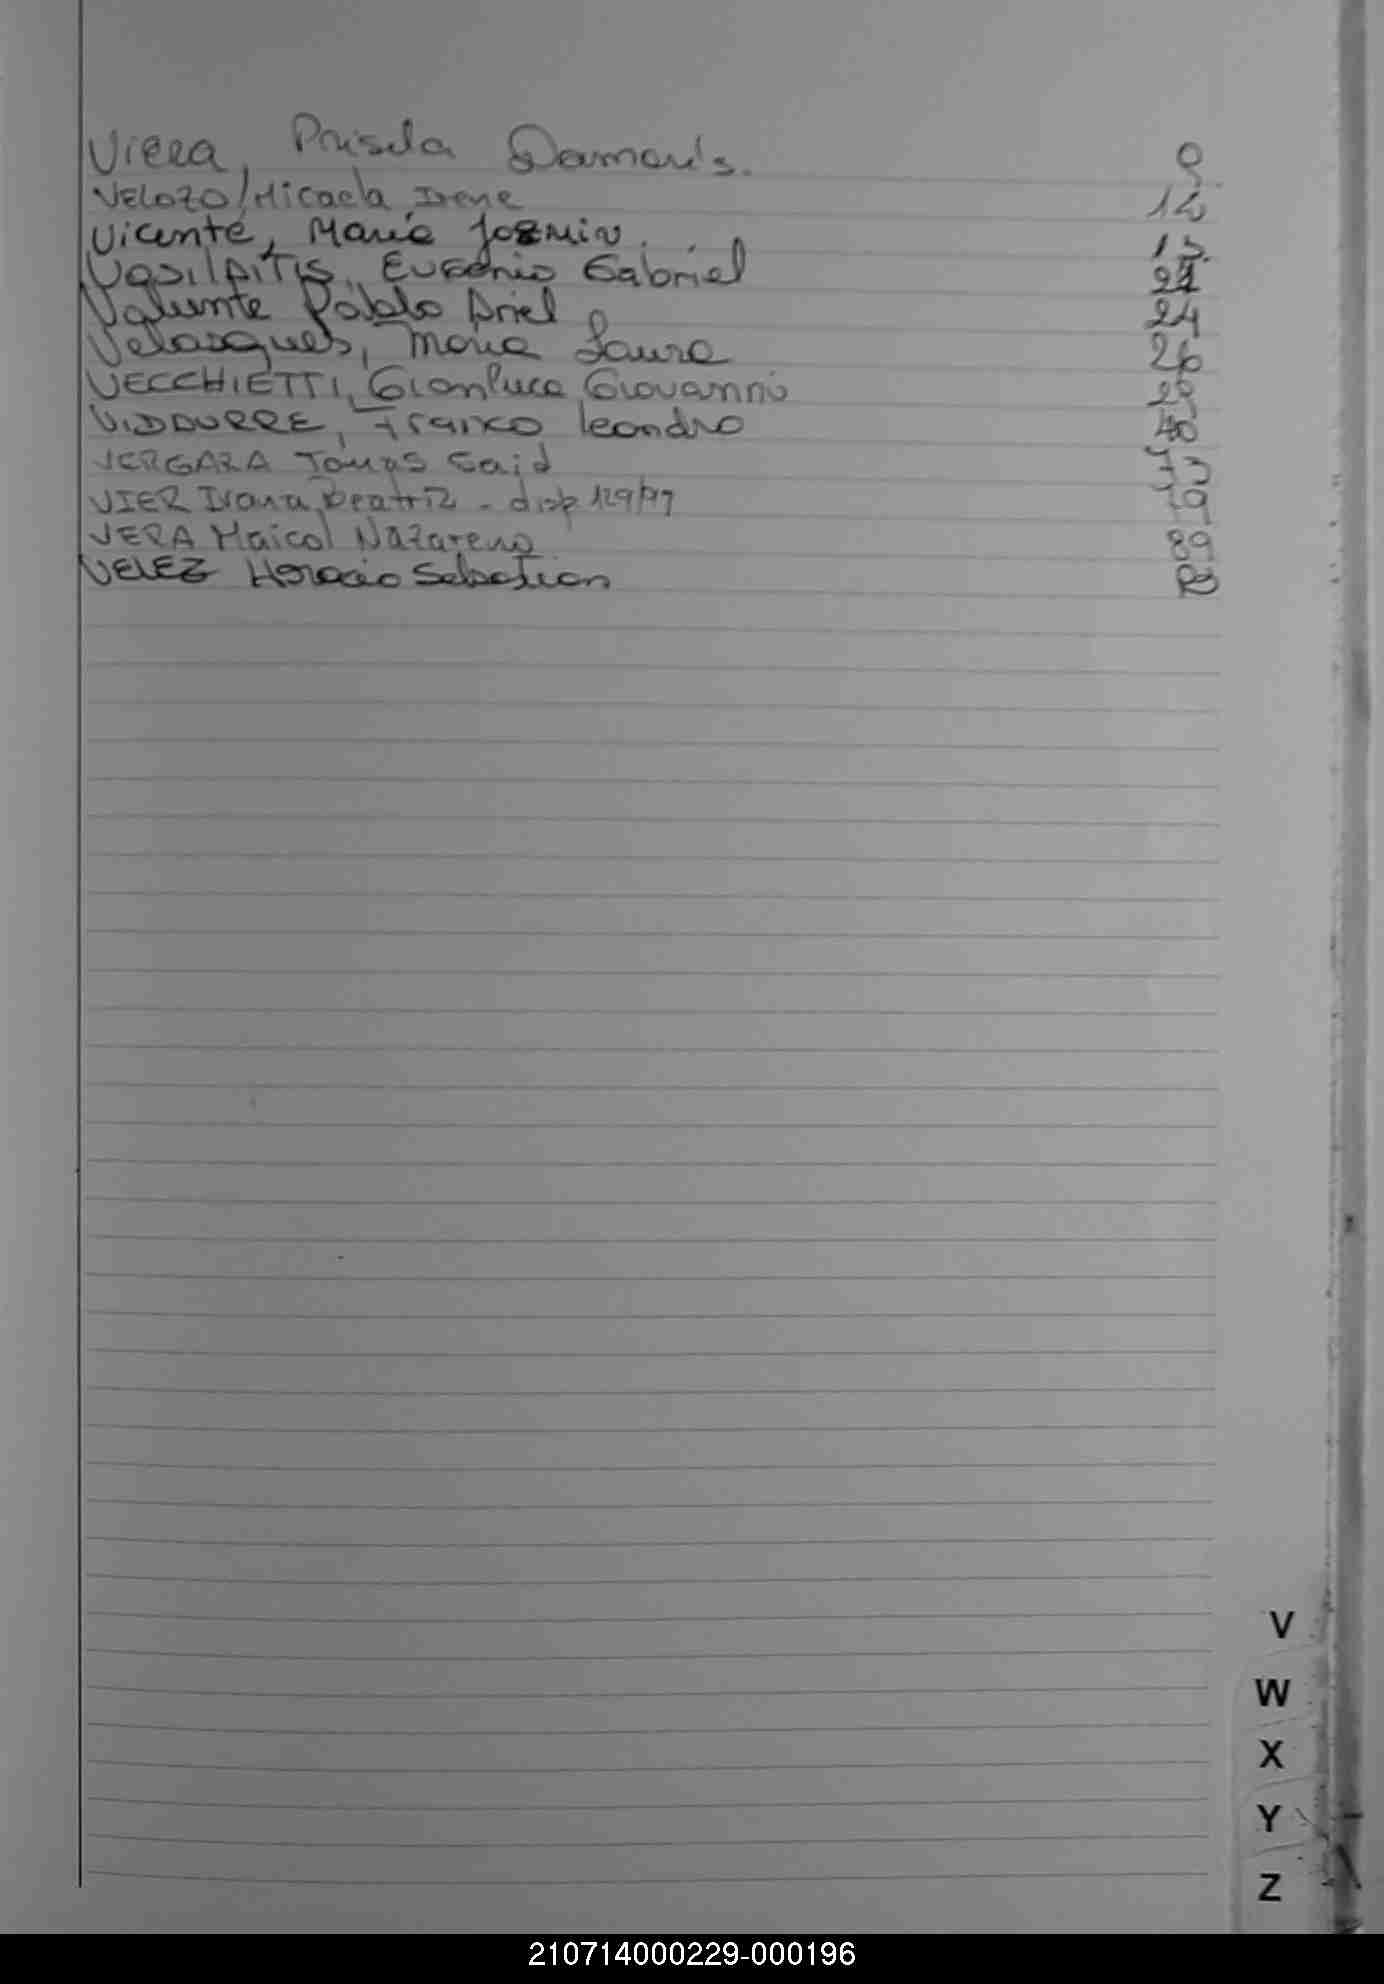 Viera, Prisila Damaris. 9
VELOZO/Micaela Irene 12
Vicente, María Jozmin. 15
VASILAITIS, Eugenio Gabriel
Valiente Pablo Ariel 24
Velasques, Maria Laura 26
VECCHIETTI, Gianluca Giovanni 29
VIDAURRE, Franco leandro 40
VERGARA Tomas Said 73
VIER Ivana Beatriz - disp 129/97 79
VERA Maicol Nazareno 89
VELEZ Horacio Sebastian
V
W
X
Y
Z
210714000229-000196